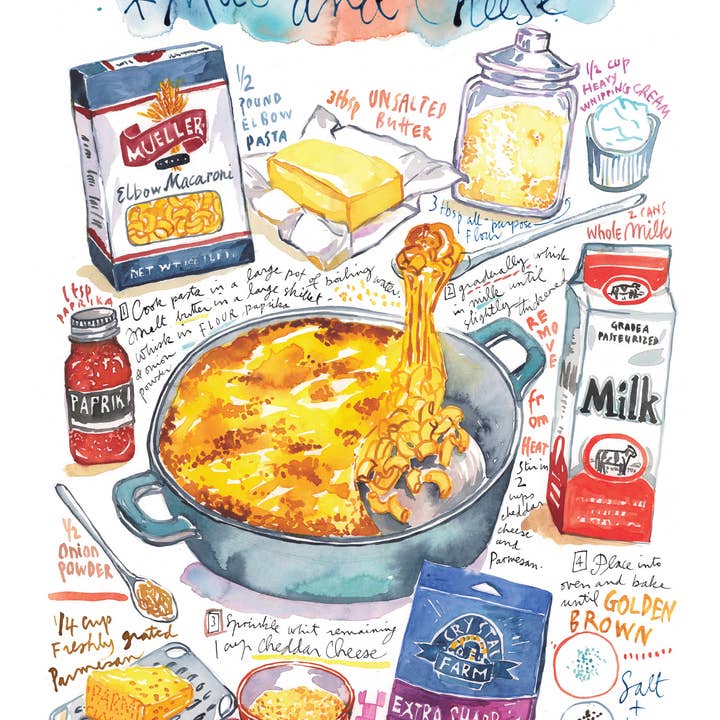 + Mac and Cheese
1/2
POUND
ELBOW
PASTA
3 tbsp UNSALTED
Butter
1/2 cup
HEAVY
WHIPPING CREAM
MUELLER
Elbow Macaroni
NET WT
3 tbsp all-purpose
Flour
2 CANS
Whole Milk
1 tsp
PAPRIKA
1 Cook pasta in a large pot of boiling water.
Melt butter in a large skillet.
whisk in FLOUR paprika
& onion
powder
2 gradually whisk
in milk until
slightly thickened
REMOVE
from
HEAT
Stir in
2
cups
cheddar
cheese
and
Parmesan.
GRADE A
PASTEURIZED
Milk
PAPRIK
1/2
Onion
POWDER
1/4 cup
Freshly grated
Parmesan
3 Sprinkle whit remaining
1 cup cheddar cheese
4 Place into
oven and bake
until GOLDEN
BROWN
CRYSTAL
FARM
EXTRA SHARP
PARM
Salt
+